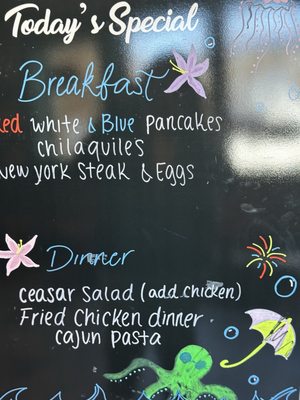 Today's Special
Breakfast
Red white & Blue pancakes
chilaquiles
New york steak & Eggs
Dinner
ceasar salad (add chicken)
Fried Chicken dinner
cajun pasta